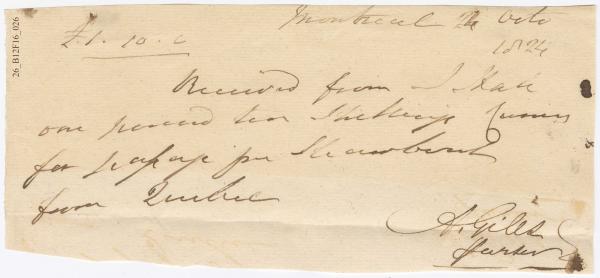 26_B12F16_026
Montreal 24 Octo
1824
£1.10.0
Received from J. Hall
one pound ten Shillings Curncy
for passage per Steamboat
from Quebec
A. Giles
Purser